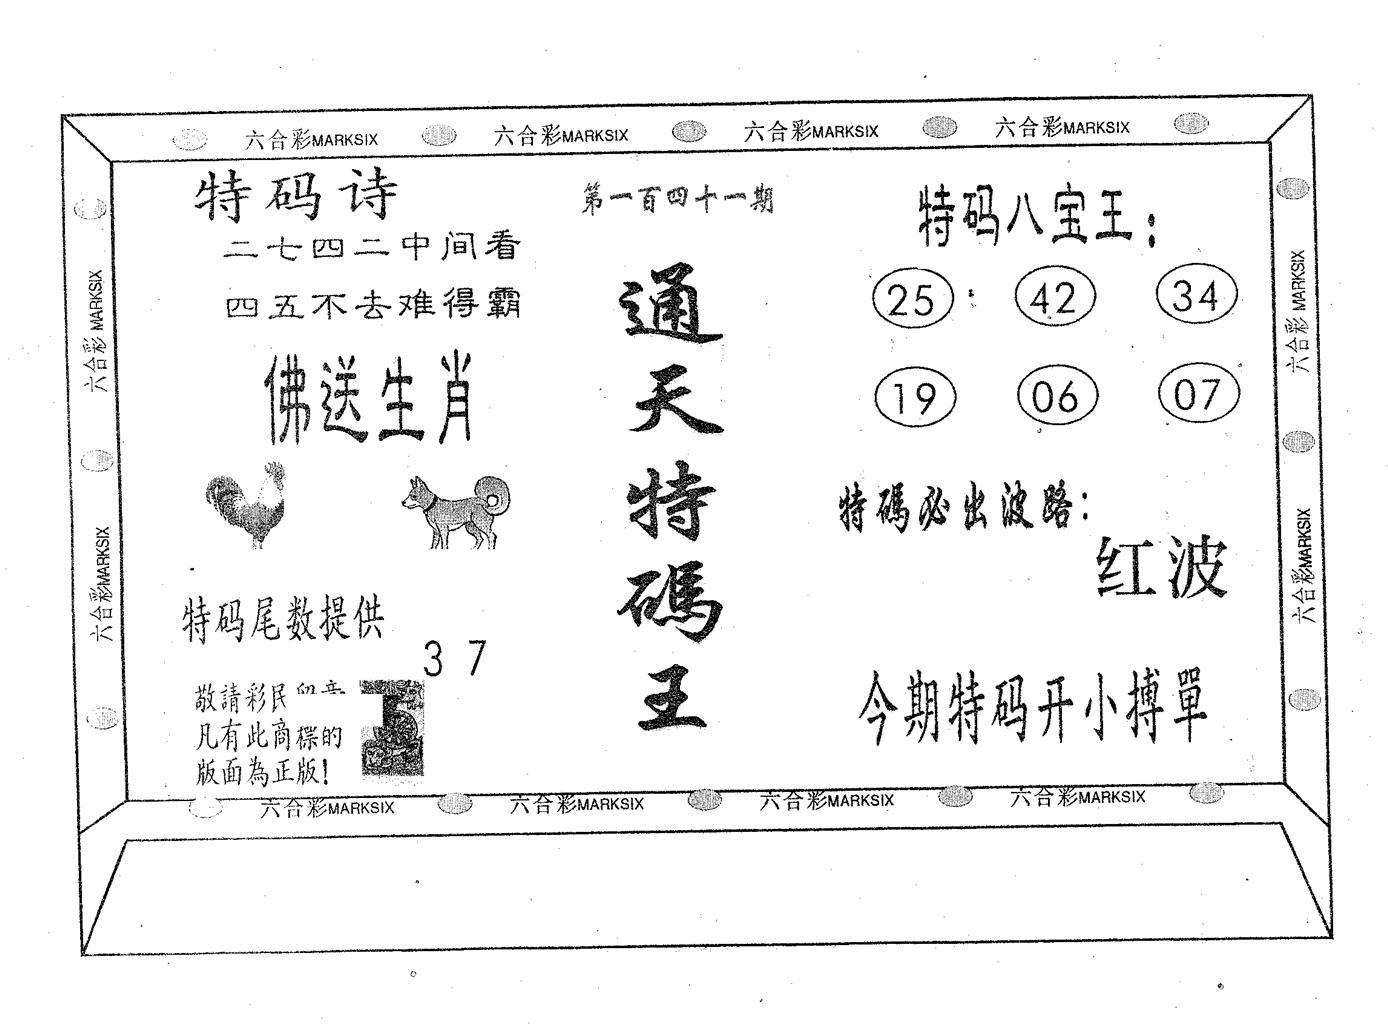 六合彩MARKSIX 六合彩MARKSIX 六合彩MARKSIX 六合彩MARKSIX
六合彩 MARKSIX
六合彩MARKSIX
特码诗
二七四二中间看
四五不去难得霸
佛送生肖
特码尾数提供
3 7
敬請彩民留意
凡有此商標的
版面為正版!
第一百四十一期
通天特碼王
特码八宝王:
25 42 34
19 06 07
特碼必出波路:
红波
今期特码开小搏單
六合彩 MARKSIX
六合彩MARKSIX
六合彩MARKSIX 六合彩MARKSIX 六合彩MARKSIX 六合彩MARKSIX